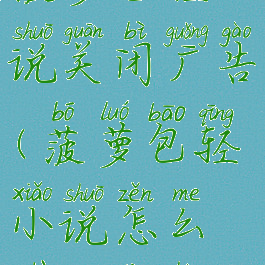 shuō guān bì guǎng gào
说关闭广告
bō luó bāo qīng
(菠萝包轻
xiǎo shuō zěn me
小说怎么